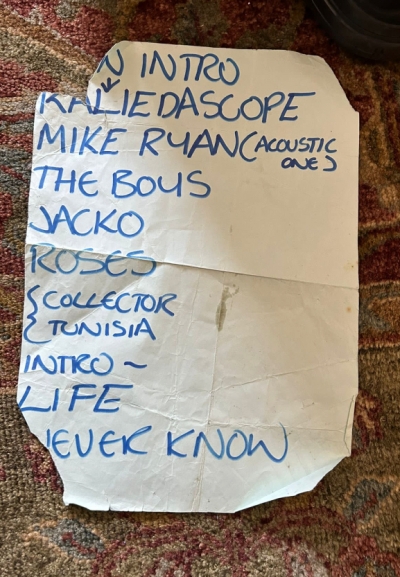 N INTRO
KALIEDASCOPE
MIKE RYAN (ACOUSTIC
ONE)
THE BOYS
JACKO
ROSES
{COLLECTOR
{TUNISIA
INTRO ~
LIFE
EVER KNOW